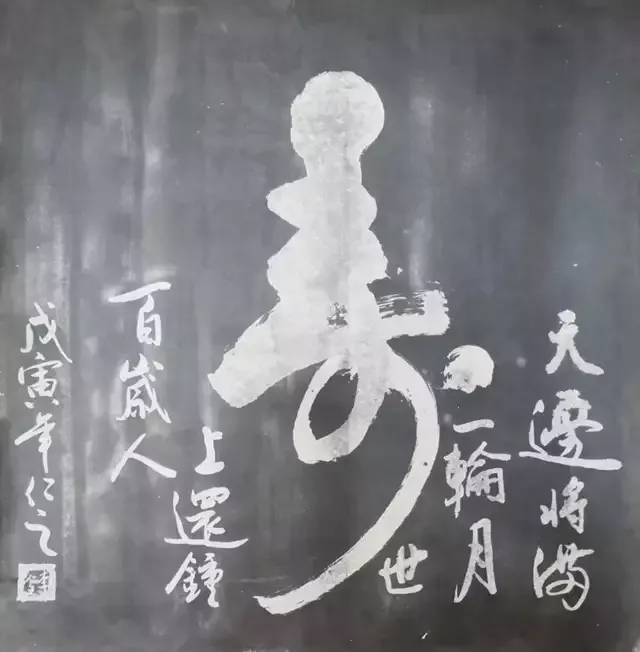 寿
天邊將滿
一輪月
世
上還鐘
百歲人
戊寅年仁之